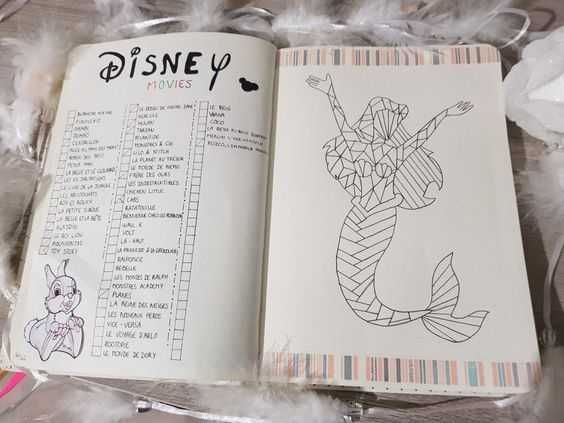 DISNEY
MOVIES
BLANCHE NEIGE
PINOCCHIO
BAMBI
DUMBO
CENDRILLON
PETER PAN
LA BELLE ET LE CLOCHARD
LES 101 DALMATIENS
LE LIVRE DE LA JUNGLE
LES ARISTOCHATS
ROX ET ROUKY
LA PETITE SIRÈNE
LA BELLE ET LA BÊTE
ALADDIN
LE ROI LION
POCAHONTAS
TOY STORY
LE BOSSU DE NOTRE DAME
HERCULE
MULAN
TARZAN
ATLANTIDE
MONSTRES & CIE
LILO & STITCH
LA PLANÈTE AU TRÉSOR
LE MONDE DE NEMO
FRÈRE DES OURS
LES INDESTRUCTIBLES
CHICKEN LITTLE
CARS
RATATOUILLE
BIENVENUE CHEZ LES ROBINSON
WALL.E
VOLT
LÀ-HAUT
LA PRINCESSE & LA GRENOUILLE
RAIPONCE
REBELLE
LES MONDES DE RALPH
MONSTRES ACADEMY
PLANES
LA REINE DES NEIGES
LES NOUVEAUX HEROS
VICE-VERSA
LE VOYAGE D'ARLO
ZOOTOPIE
LE MONDE DE DORY
LE BGG
VAIANA
COCO